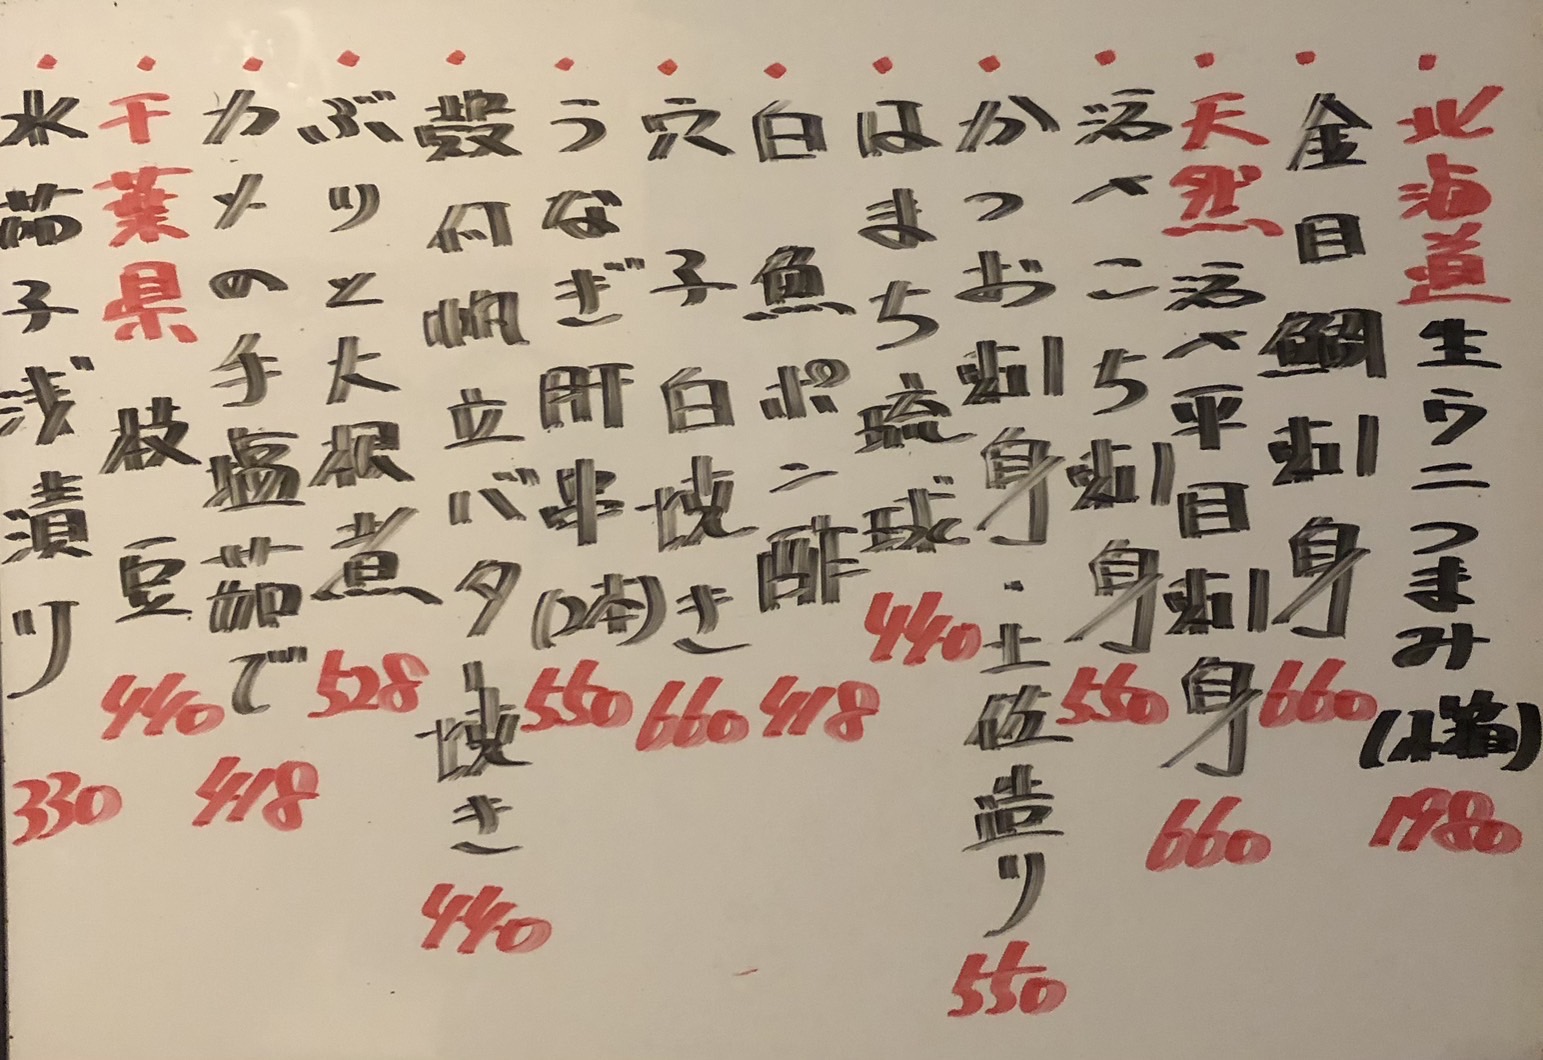 ・北海道生ウニつまみ(小箱)1980
・金目鯛刺身660
・天然活〆平目刺身660
・活〆こち刺身550
・かつお刺身・土佐造り550
・はまち琉球440
・白魚ポン酢418
・穴子白焼き660
・うなぎ肝串(2本)550
・殻付帆立バター焼き440
・ぶりと大根煮528
・カメの手塩茹で418
・千葉県枝豆440
・水茄子浅漬り330